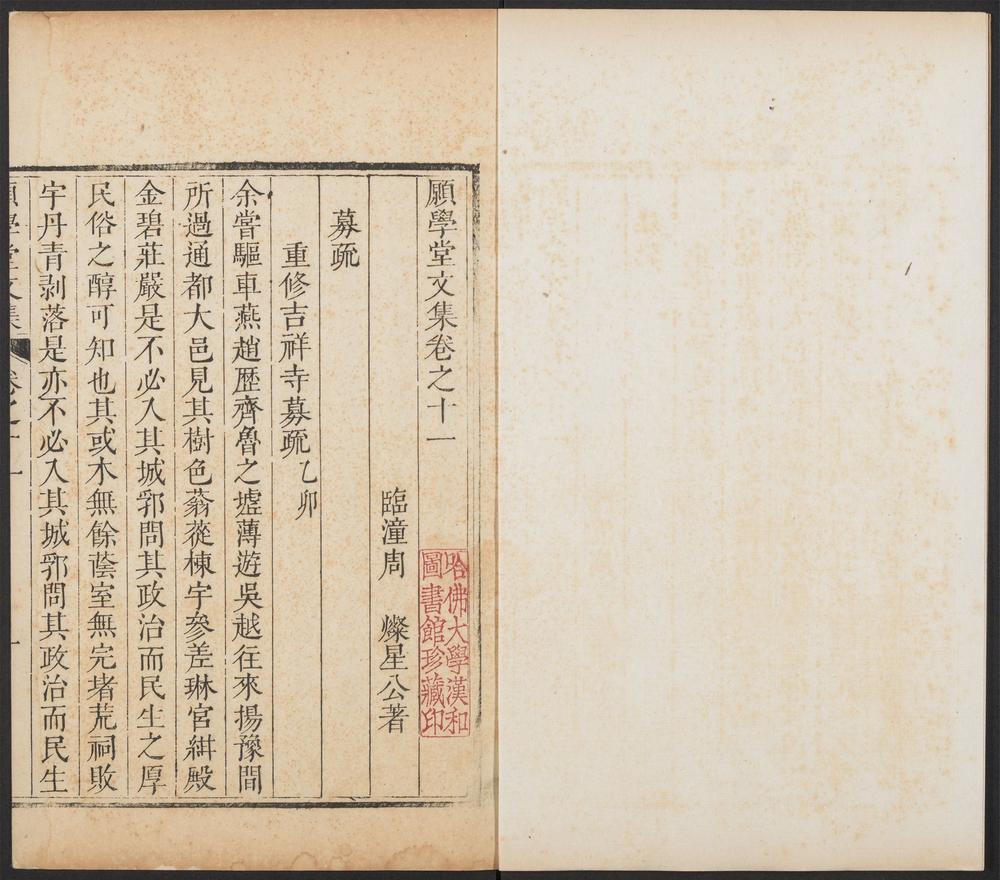 願學堂文集卷之十一
哈佛大學漢和
圖書館珍藏印
臨潼周　燦星公著
募疏
重修吉祥寺募疏乙卯
余嘗驅車燕趙歷齊魯之墟薄遊吳越往來揚豫間
所過通都大邑見其樹色蓊蓯棟宇參差琳宮紺殿
金碧莊嚴是不必入其城郭問其政治而民生之厚
民俗之醇可知也其或木無餘蔭室無完堵荒祠敗
宇丹青剥落是亦不必入其城郭問其政治而民生
願學堂文集　卷之十一　一